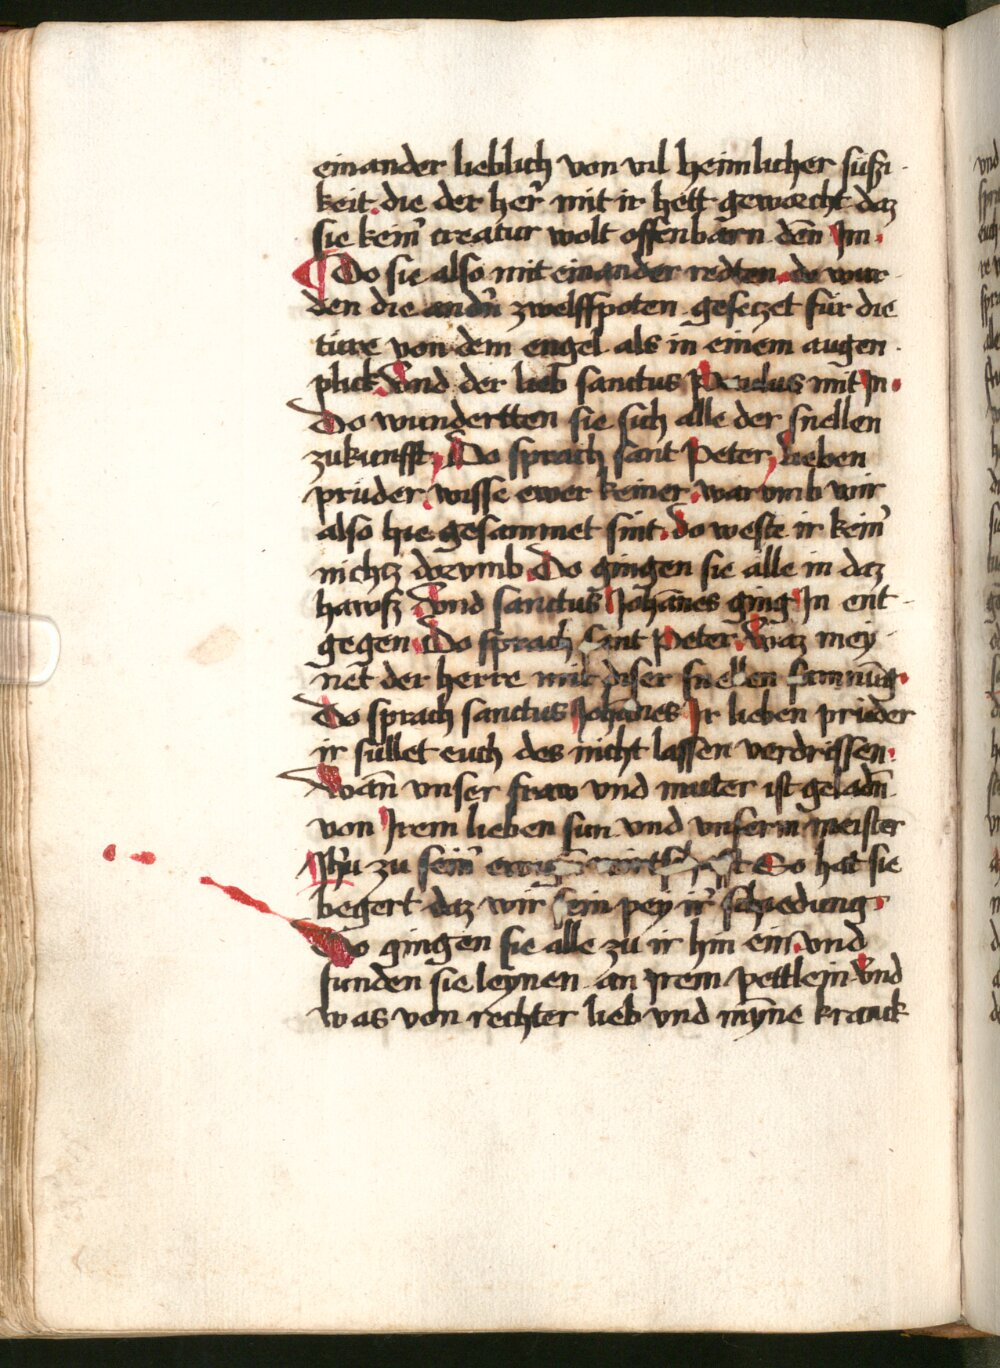 einander lieblich von vil heimlicher süßi
keit. die der her̄ mit ir hett geworcht daz
sie kein̄ creatur wolt offenbarn den̄ Im.
¶ Do sie also mit einander redten. do wur
den die andn̄ zwelffpoten gesetzet für die
türe von dem engel als in einem augen
plick. Vnd der lieb sanctus Paulus mit In.
Do wundertten sie sich alle der snellen
zukunfft. Do sprach sant Peter, lieben
prüder. wisse ewer keiner. warvmb wir
also hie gesammet sint. do weste ir kein̄
nichtz dorvmb. Do gingen sie alle in daz
hawß Vnd sanctus Johānes ging In ent
gegen. Do sprach sant Peter. Waz mey
net der herre mit diser snellen samnūg.
Do sprach sanctus Johānes Ir lieben prüder
ir süllet euch des nicht lassen verdrissen.
Wan̄ vnser fraw vnd muter ist geladn̄
von Irem lieben sun vnd vnserm meister
Jhū zu sein̄ ewig wirtschafft So hat sie
begert daz wir sein pey ir̄ schiedung.
Do gingen sie alle zu ir hin ein. vnd
funden sie leynen an irem pettlein Vnd
was von rechter lieb vnd mȳne kranck